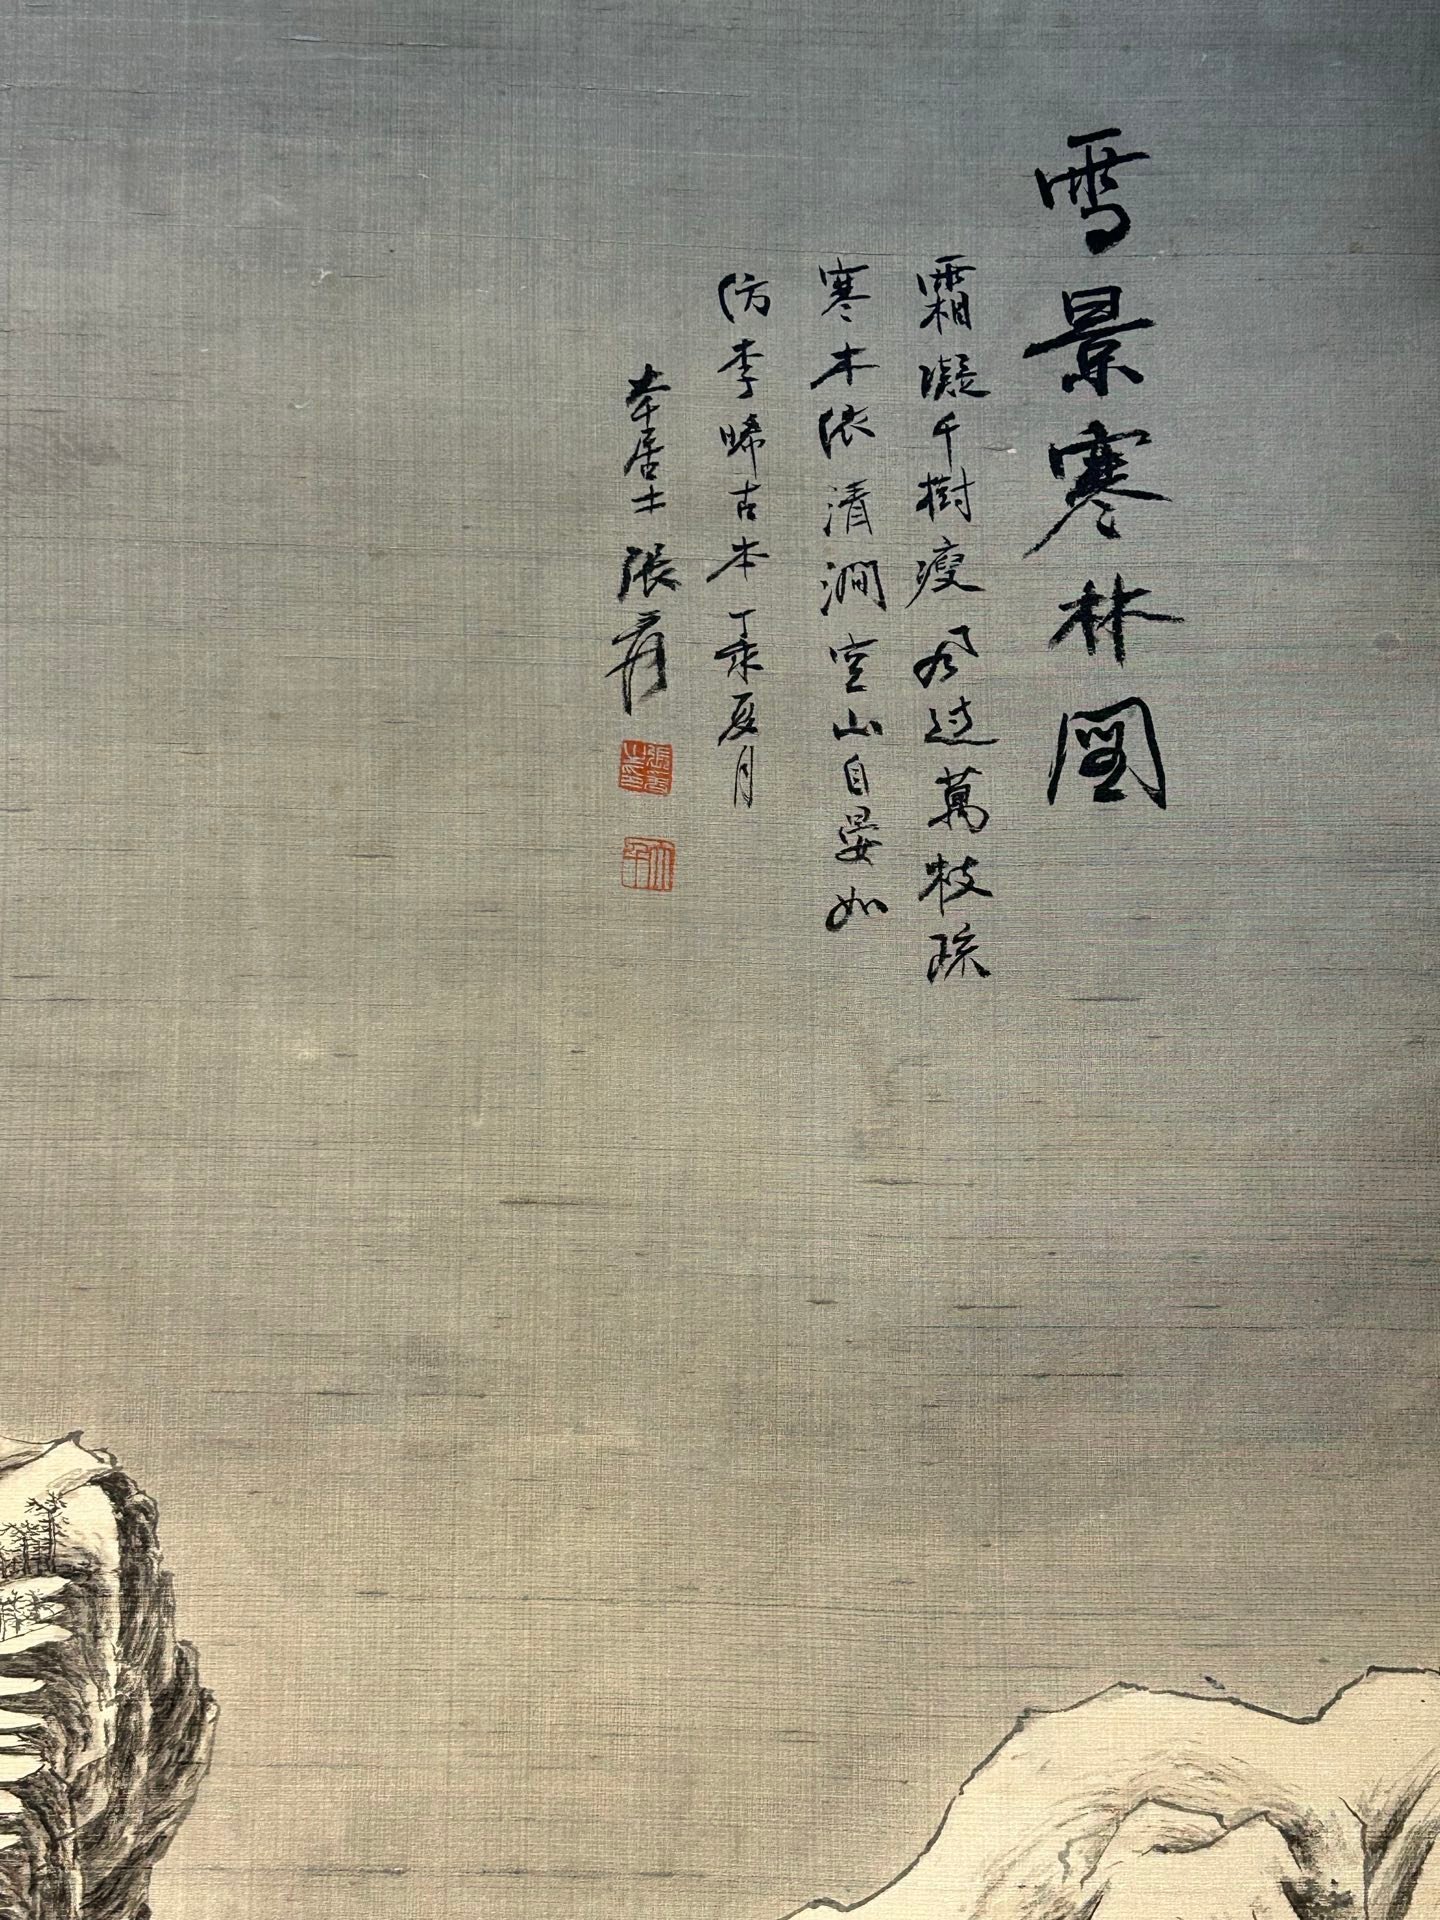 雪景寒林圖
霜凝千樹瘦風过萬枝疏
寒木依清澗空山自晏如
仿李晞古本丁亥夏月
居士張爰
張爰
大千